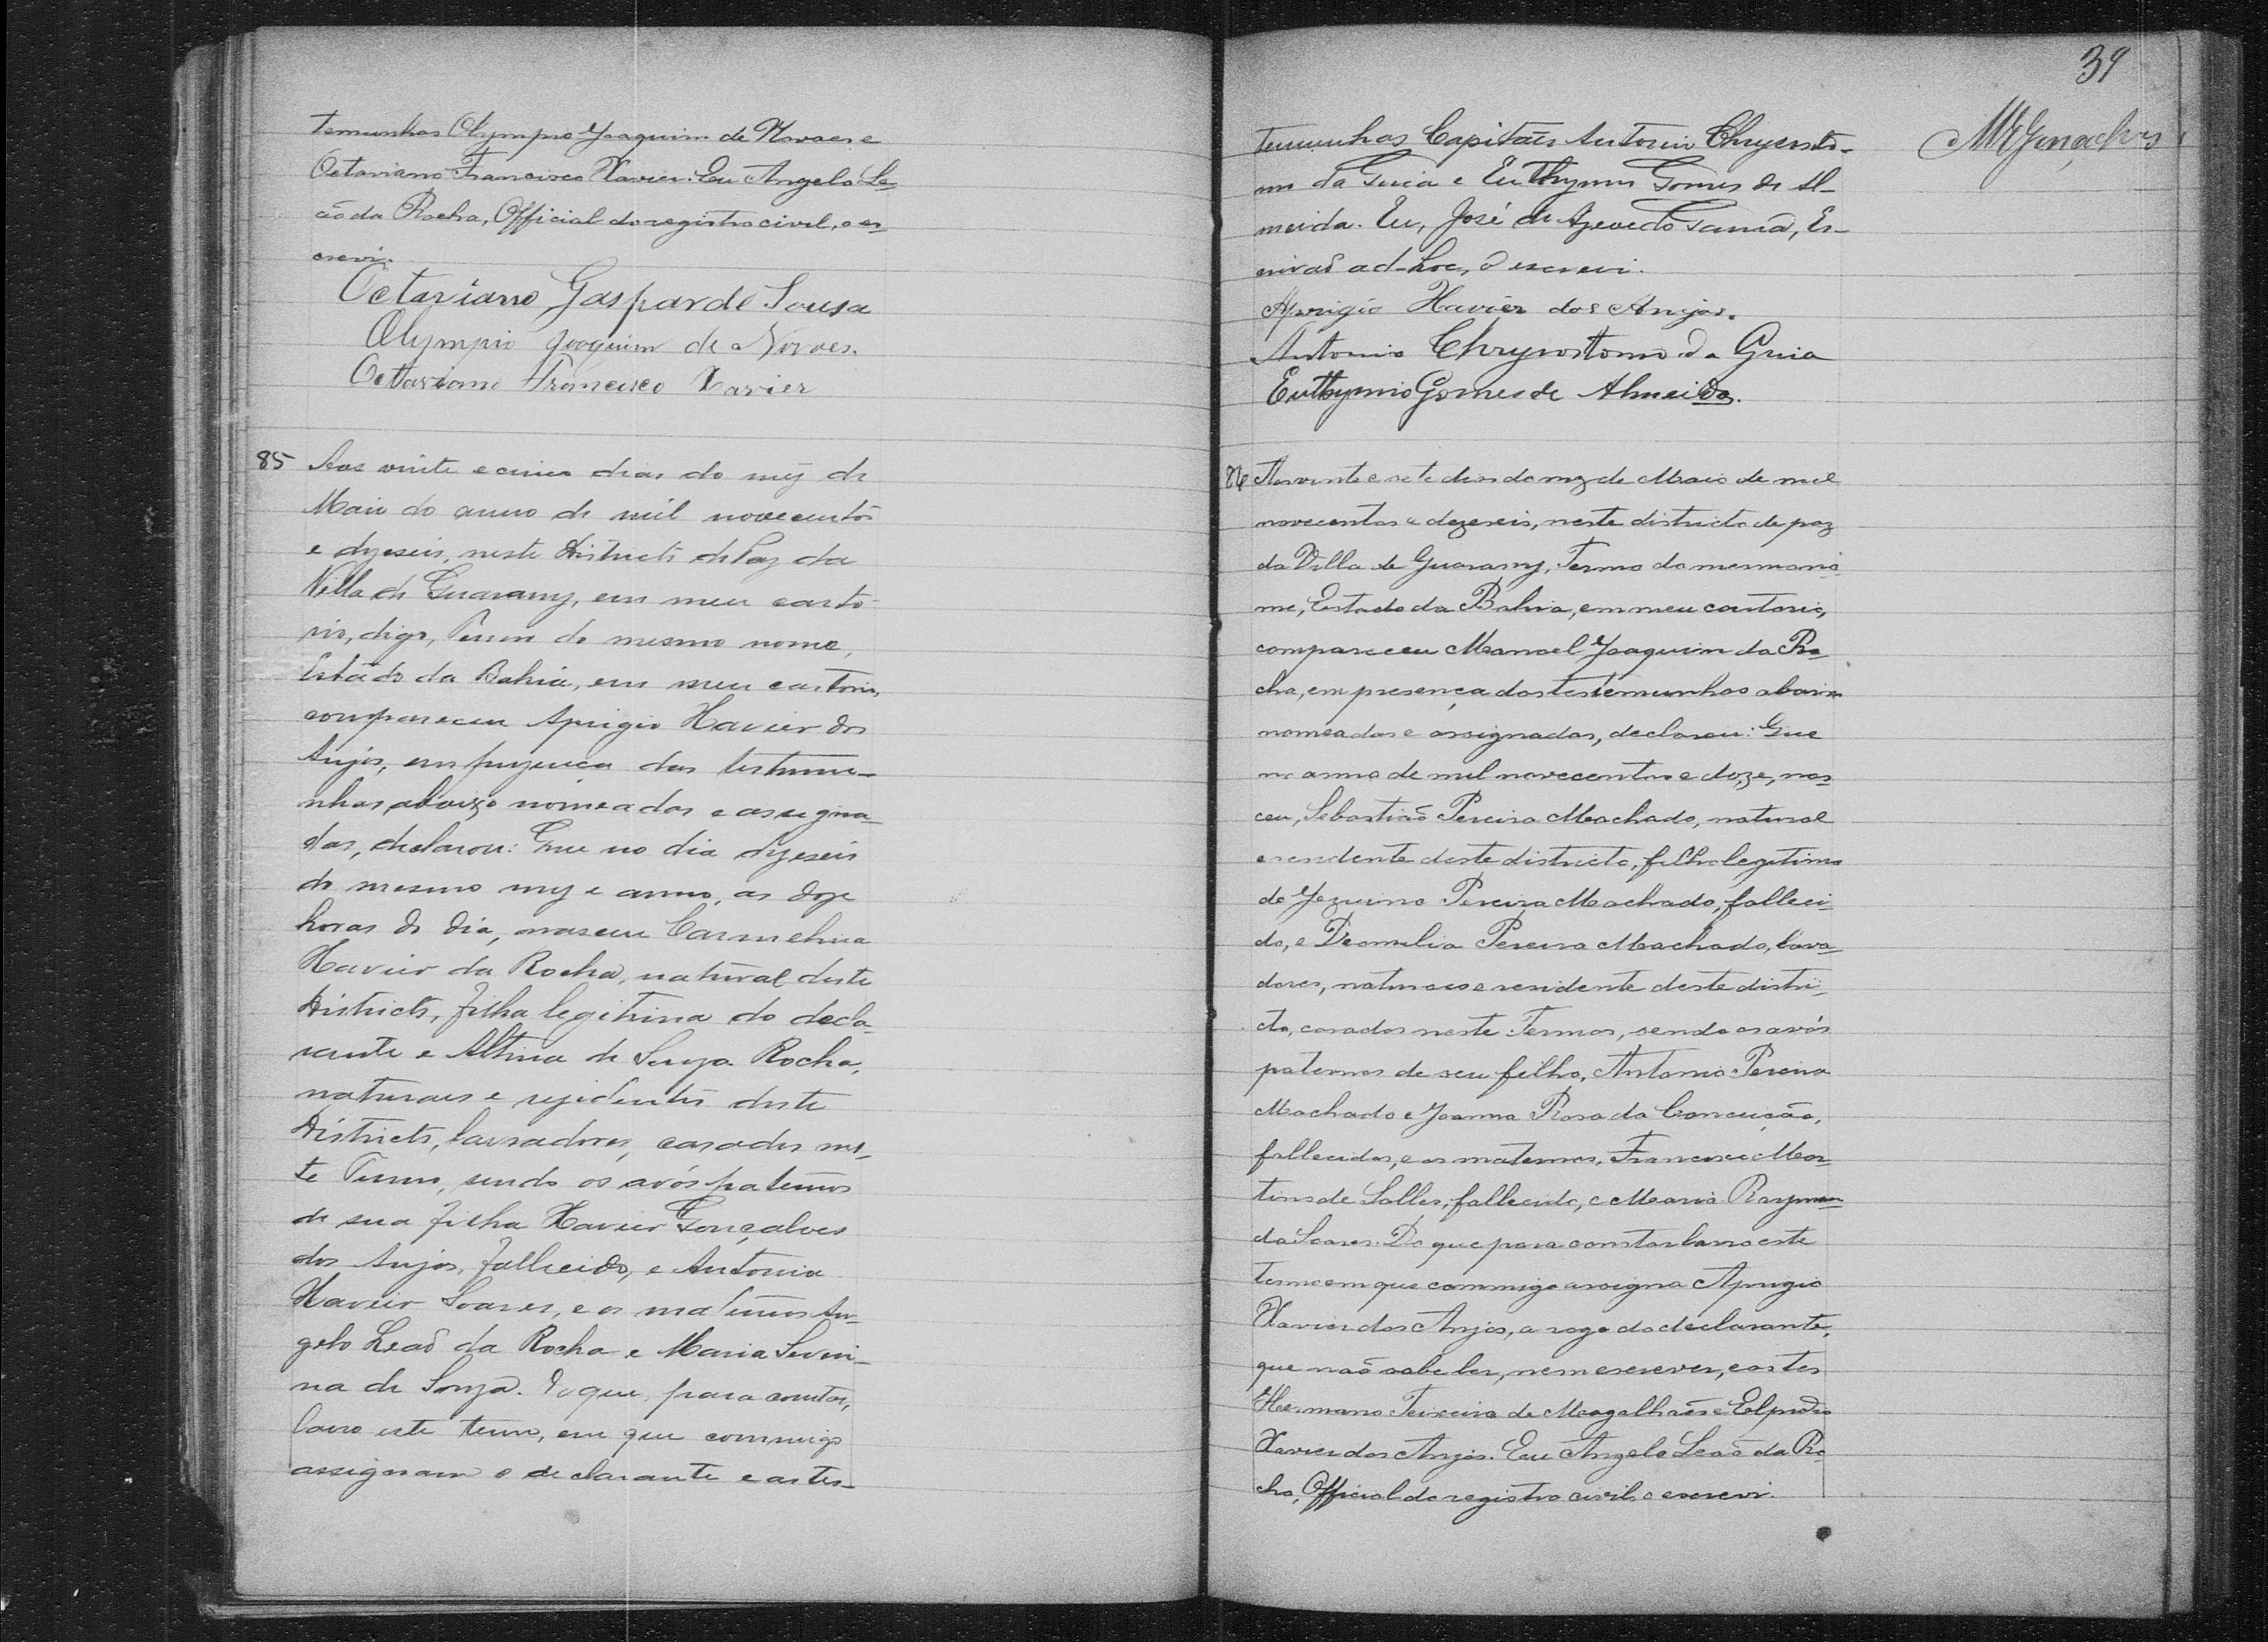 temunhas Olympio Joaquim de Novaes e
Octaviano Francisco Xavier. Eu Angelo Le-
ão da Rocha, Official do registro civil, o es-
crevi.
Octaviano Gaspar de Sousa
Olympio Joaquim de Novaes.
Octaviano Francisco Xavier
85 Aos vinte e cinco dias do mez de
Maio do anno de mil novecentos
e dezeseis, neste Districto de Paz da
Villa de Guarany, em meu carto-
rio, digo, Termo do mesmo nome,
Estado da Bahia, em meu cartorio,
compareceu Aprigio Xavier dos
Anjos, em prezença das testemu-
nhas, abaixo nomeadas e assigna-
das, declarou: Que no dia dezeseis
do mesmo mez e anno, as doze
horas do dia, nasceu Carmelina
Xavier da Rocha, natural deste
Districto, filha legitima do decla-
rante e Altina de Souza Rocha,
naturaes e rezidentes deste
Districto, lavradores, casados nes-
te Termo, sendo os avós paternos
de sua filha Xavier Gonçalves
dos Anjos, fallecido, e Antonia
Xavier Soares, e os maternos An-
gelo Leaõ da Rocha e Maria Severi-
na de Souza. Do que, para constar,
lavro este termo, em que commigo
assignam o declarante e as tes-
39
temunhas Capitães Antonio Chrysosto-
mo da Guia e Euthymio Gomes de Al-
meida. Eu, José de Azevedo Gama, Es-
crivaõ ad-hoc, o escrevi.
Aprigio Xavier dos Anjos.
Antonio Chrysostomo da Guia
Euthymio Gomes de Almeida.
MRGonçalves
86 Aos vinte e sete dias do mez de Maio de mil
novecentos e dezeseis, neste districto de paz
da Villa de Guarany, Termo do mesmo no-
me, Estado da Bahia, em meu cartorio,
compareceu Manoel Joaquim da Ro-
cha, em presença das testemunhas abaixo
nomeadas e assignadas, declarou: Que
no anno de mil novecentos e doze, nas-
ceu, Sebastião Pereira Machado, natural
e residente deste districto, filho legitimo
de Jezuino Pereira Machado, falleci-
do, e Pereira Machado, lavra-
dores, naturaes e residente deste distri-
cto, casados neste Termo, sendo os avós
paternos de seu filho, Antonio Pereira
Machado e Joanna Rosa da Conceição,
fallecidos, e os maternos, Francisco Mar-
tins de Salles, fallecido, e Maria Raymun-
da Soares. Do que para constar lavro este
termo em que commigo assigna Aprigio
Xavier dos Anjos, a rogo do declarante,
que naõ sabe ler, nem escrever, e as tes
Hermano Teixeira de Magalhães e Elpidio
Xavier dos Anjos. Eu Angelo Leaõ da Ro-
cha, Official do registro civil o escrevi.